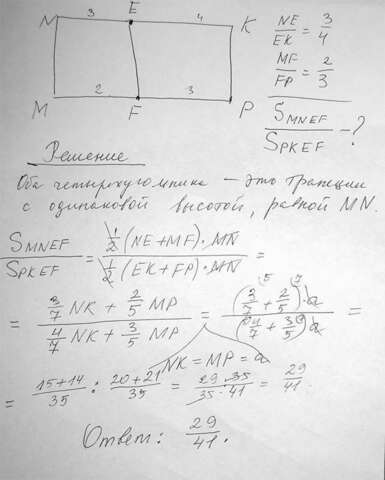 N 3 E 4 K
M 2 F 3 P
NE/EK = 3/4
MF/FP = 2/3
S_MNEF/S_PKEF - ?
Решение
Оба четырехугольника - это трапеции
с одинаковой высотой, равной MN.
S_MNEF/S_PKEF = (1/2 (NE+MF)·MN)/(1/2 (EK+FP)·MN) =
= (3/7 NK + 2/5 MP)/(4/7 NK + 3/5 MP) = ((3/7 + 2/5)·a)/((4/7 + 3/5)·a) =
NK = MP = a
= (15+14)/35 : (20+21)/35 = (29·35)/(35·41) = 29/41.
Ответ: 29/41.